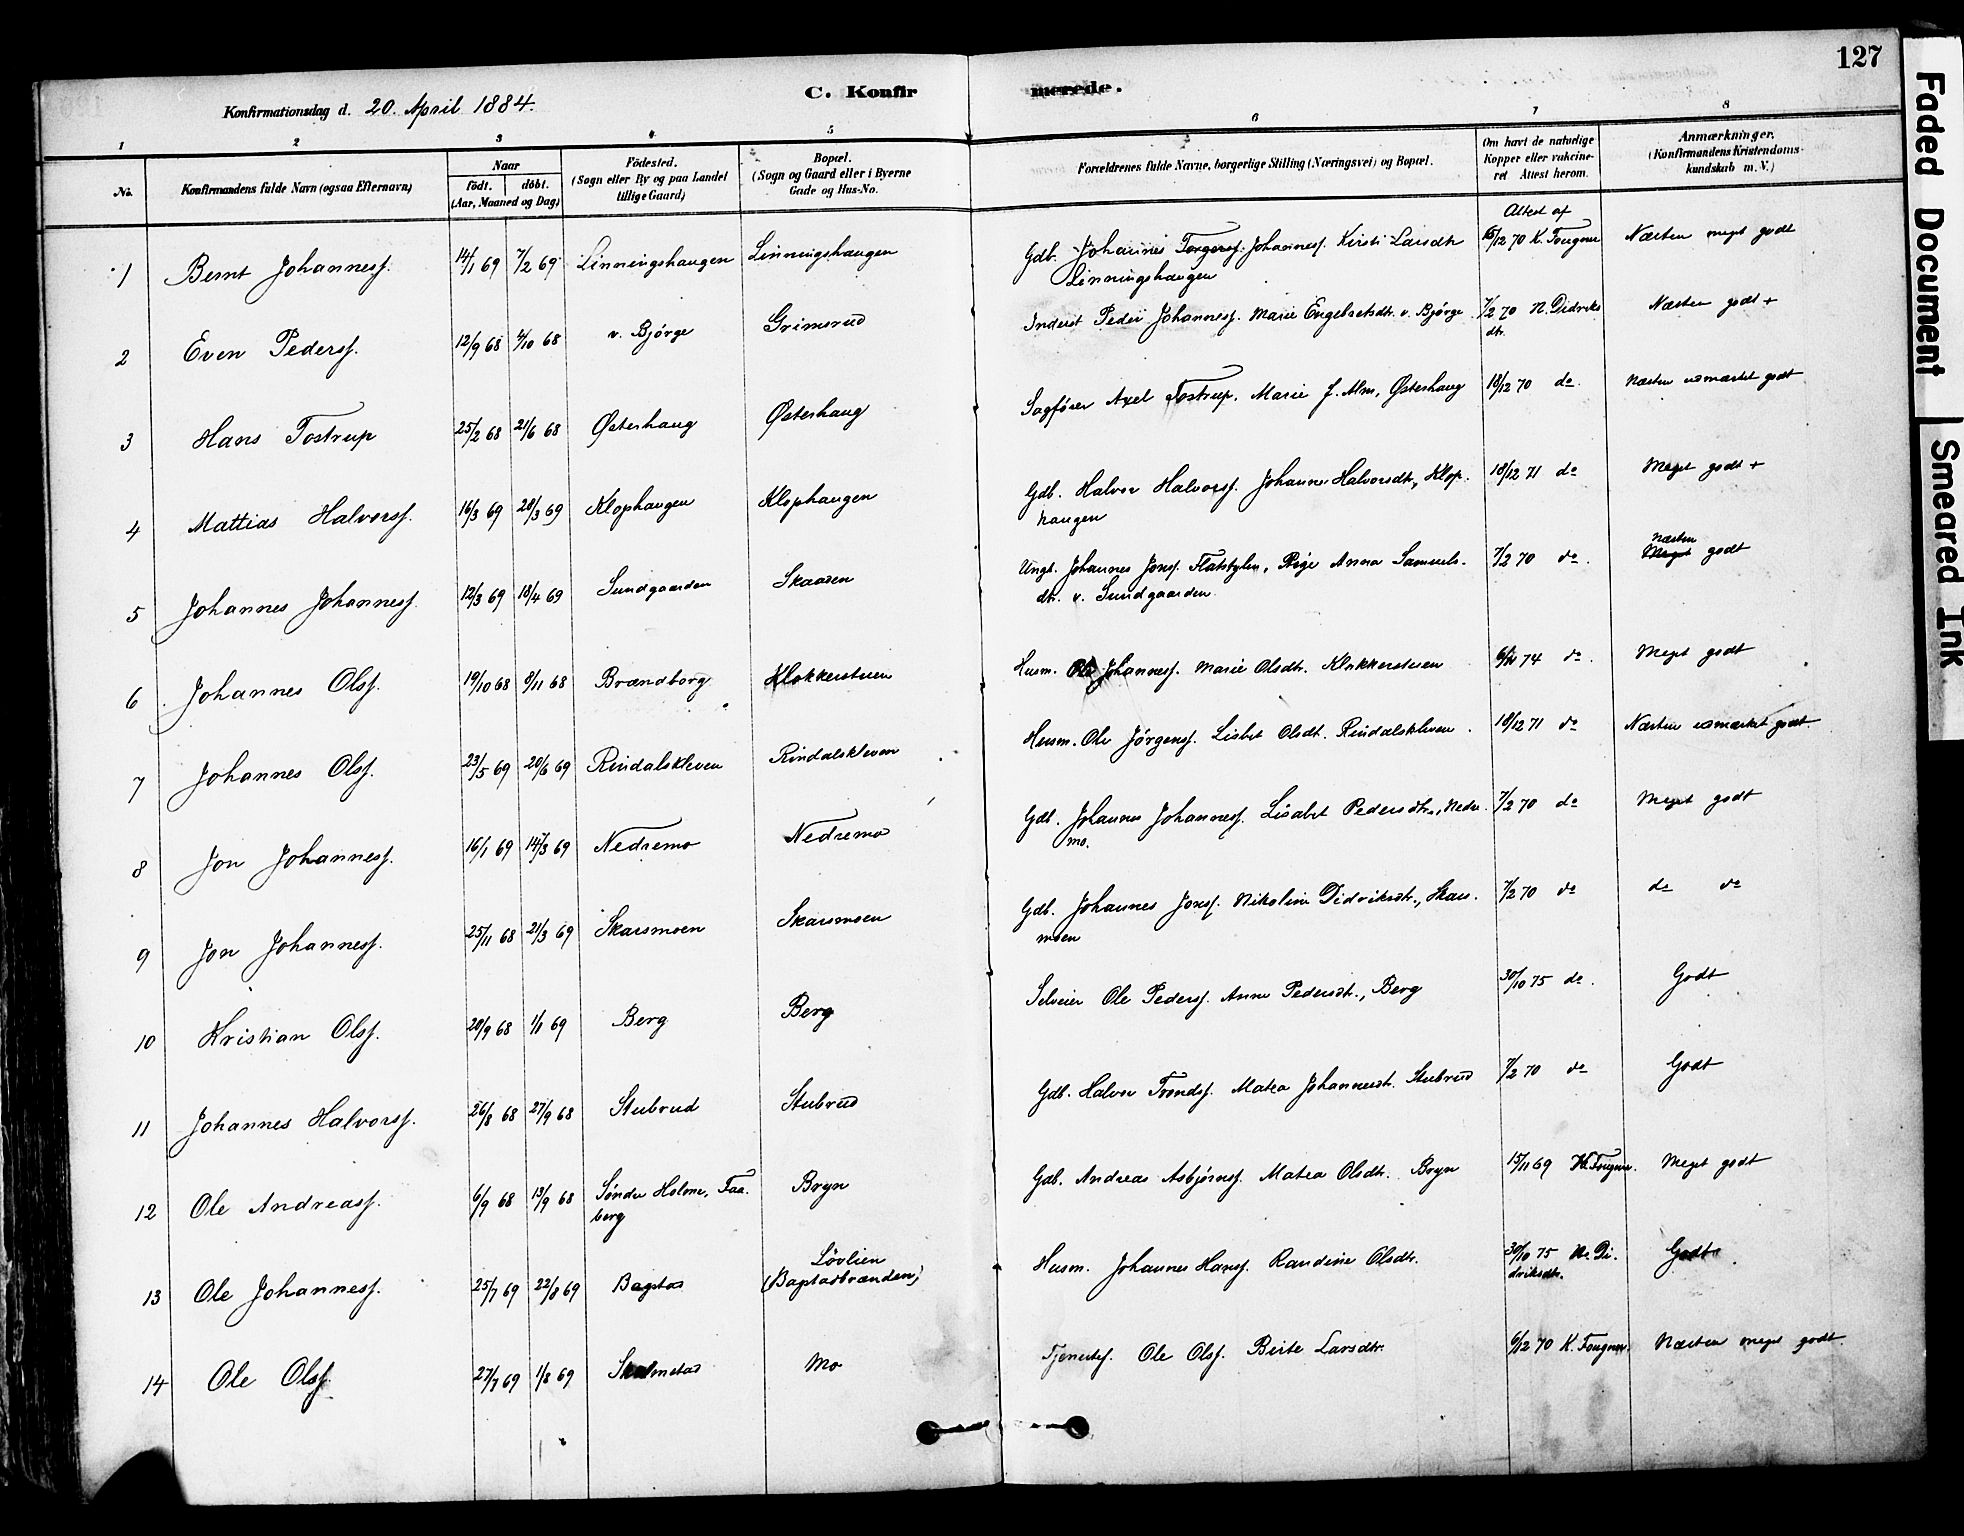 127
C. Konfirmerede.
Konfirmationsdag d. 20. April 1884.
1 2 3 4 5 6 7 8
No. Konfirmandens fulde Navn (ogsaa Efternavn)
Naar født. døbt. (Aar, Maaned og Dag)
Fødested. (Sogn eller By og paa Landet tillige Gaard)
Bopæl. (Sogn og Gaard eller i Byerne Gade og Hus-No.
Forældrenes fulde Navne, borgerlige Stilling (Næringsvei) og Bopæl.
Om havt de naturlige Kopper eller vakcineret Attest herom.
Anmærkninger. (Konfirmandens Kristendomskundskab m. V.)
Attest af
1 Bernt Johannesf. 14/1 69 7/2 69 Linningshaugen Linningshaugen Gdb. Johannes Johannesf. Kirsti Larsdtr 12 70 K. Fougner Næsten meget godt
Linningshaugen
2 Even Pedersf. 12/9 68 4/10 68 v. Bjørge Grimsrud Inderst Peder Johannesf. Marie Engebretsdtr. v. Bjørge 7/2 70 N. Didriks Næsten godt +
dtr.
3 Hans Tostrup 25/2 68 21/6 68 Østerhaug Østerhaug Sagfører Axel Tostrup, Marie J. Alm, Østerhaug 18/12 70 do. Næsten udmærket godt
4 Mattias Halvorsf. 16/3 69 28/3 69 Klophaugen Klophaugen Gdb. Halvor Halvorsf. Johanne Halvorsdtr, Klop- 18/12 71 do Meget godt +
haugen
Næsten
5 Johannes Johannesf. 12/3 69 18/4 69 Sundgaarden Skaaden Ungk. Johannes Jonsf. Flatstylen, Pige Anna Samuels- 7/2 70 do. Meget godt
dtr. v. Sundgaarden
6 Johannes Olsf. 19/10 68 8/11 68 Brændborg Klokkerstuen Husm. Ole Johannesf. Marie Olsdtr. Klokkerstuen 74 do. Meget godt
7 Johannes Olsf. 23/5 69 20/6 69 Rindalskleven Rindalskleven Husm. Ole Jørgensf. Lisbet Olsdt. Rindalskleven. 18/12 71 do Næsten udmærket godt.
8 Jon Johannesf. 16/1 69 14/3 69 Nedremo Nedremo Gdb. Johannes Johannesf. Lisabet Pedersdtr., Nedre- 7/2 70 do Meget godt
mo.
9 Jon Johannesf. 25/11 68 21/3 69 Skarsmoen Skarsmoen Gdb. Johannes Jonsf. Nikoline Didriksdtr., Skars- 7/2 70 do do do
moen
10 Kristian Olsf. 20/9 68 1/1 69 Berg Berg Selveier Ole Pedersf. Anne Pedersdt., Berg 30/10 75 do. Godt
11 Johannes Halvorsf. 26/8 68 27/9 68 Stubrud Stubrud Gdb. Halvor Trondsf. Matea Johannesdt. Stubrud 7/2 70 do Godt
12 Ole Andreasf. 6/9 68 13/9 68 Søndre Holme, Faa- Bryn Gdb. Andreas Asbjørnsf. Matea Olsdtr. Bryn 15/11 69 K. Fougner. Meget godt
berg
13 Ole Johannesf. 25/7 69 22/8 69 Bagstad Løvlien Husm. Johannes Hansf. Randine Olsdtr. 30/10 75 N. Di- Godt
(Bagstadbrænden) driksdtr.
14 Ole Olsf. 27/7 69 1/8 69 Skalmstad Mo Tjenestef. Ole Olsf. Berte Larsdtr. 6/12 70 K. Fougner. Næsten meget godt
Faded Document
Smeared Ink